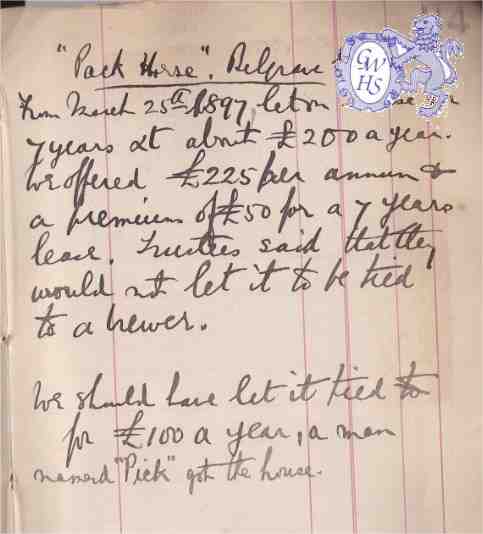 "Pack Horse". Belgrave
From March 25th 1897, let on
7 years at about £200 a year.
We offered £225 per annum &
a premium of £50 for a 7 years
lease. Trustees said that they
would not let it to be tied
to a brewer.
We should have let it tied to
for £100 a year, a man
named "Pick" got the house.
GWHS